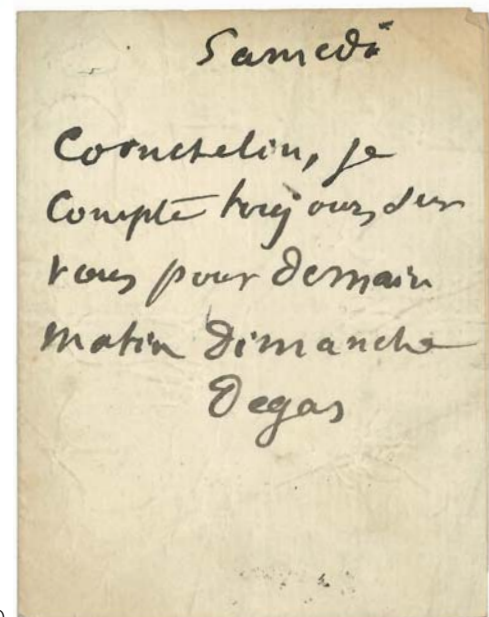 Samedi
Cornchelin, je
Compte toujours sur
vous pour demain
matin dimanche
Degas